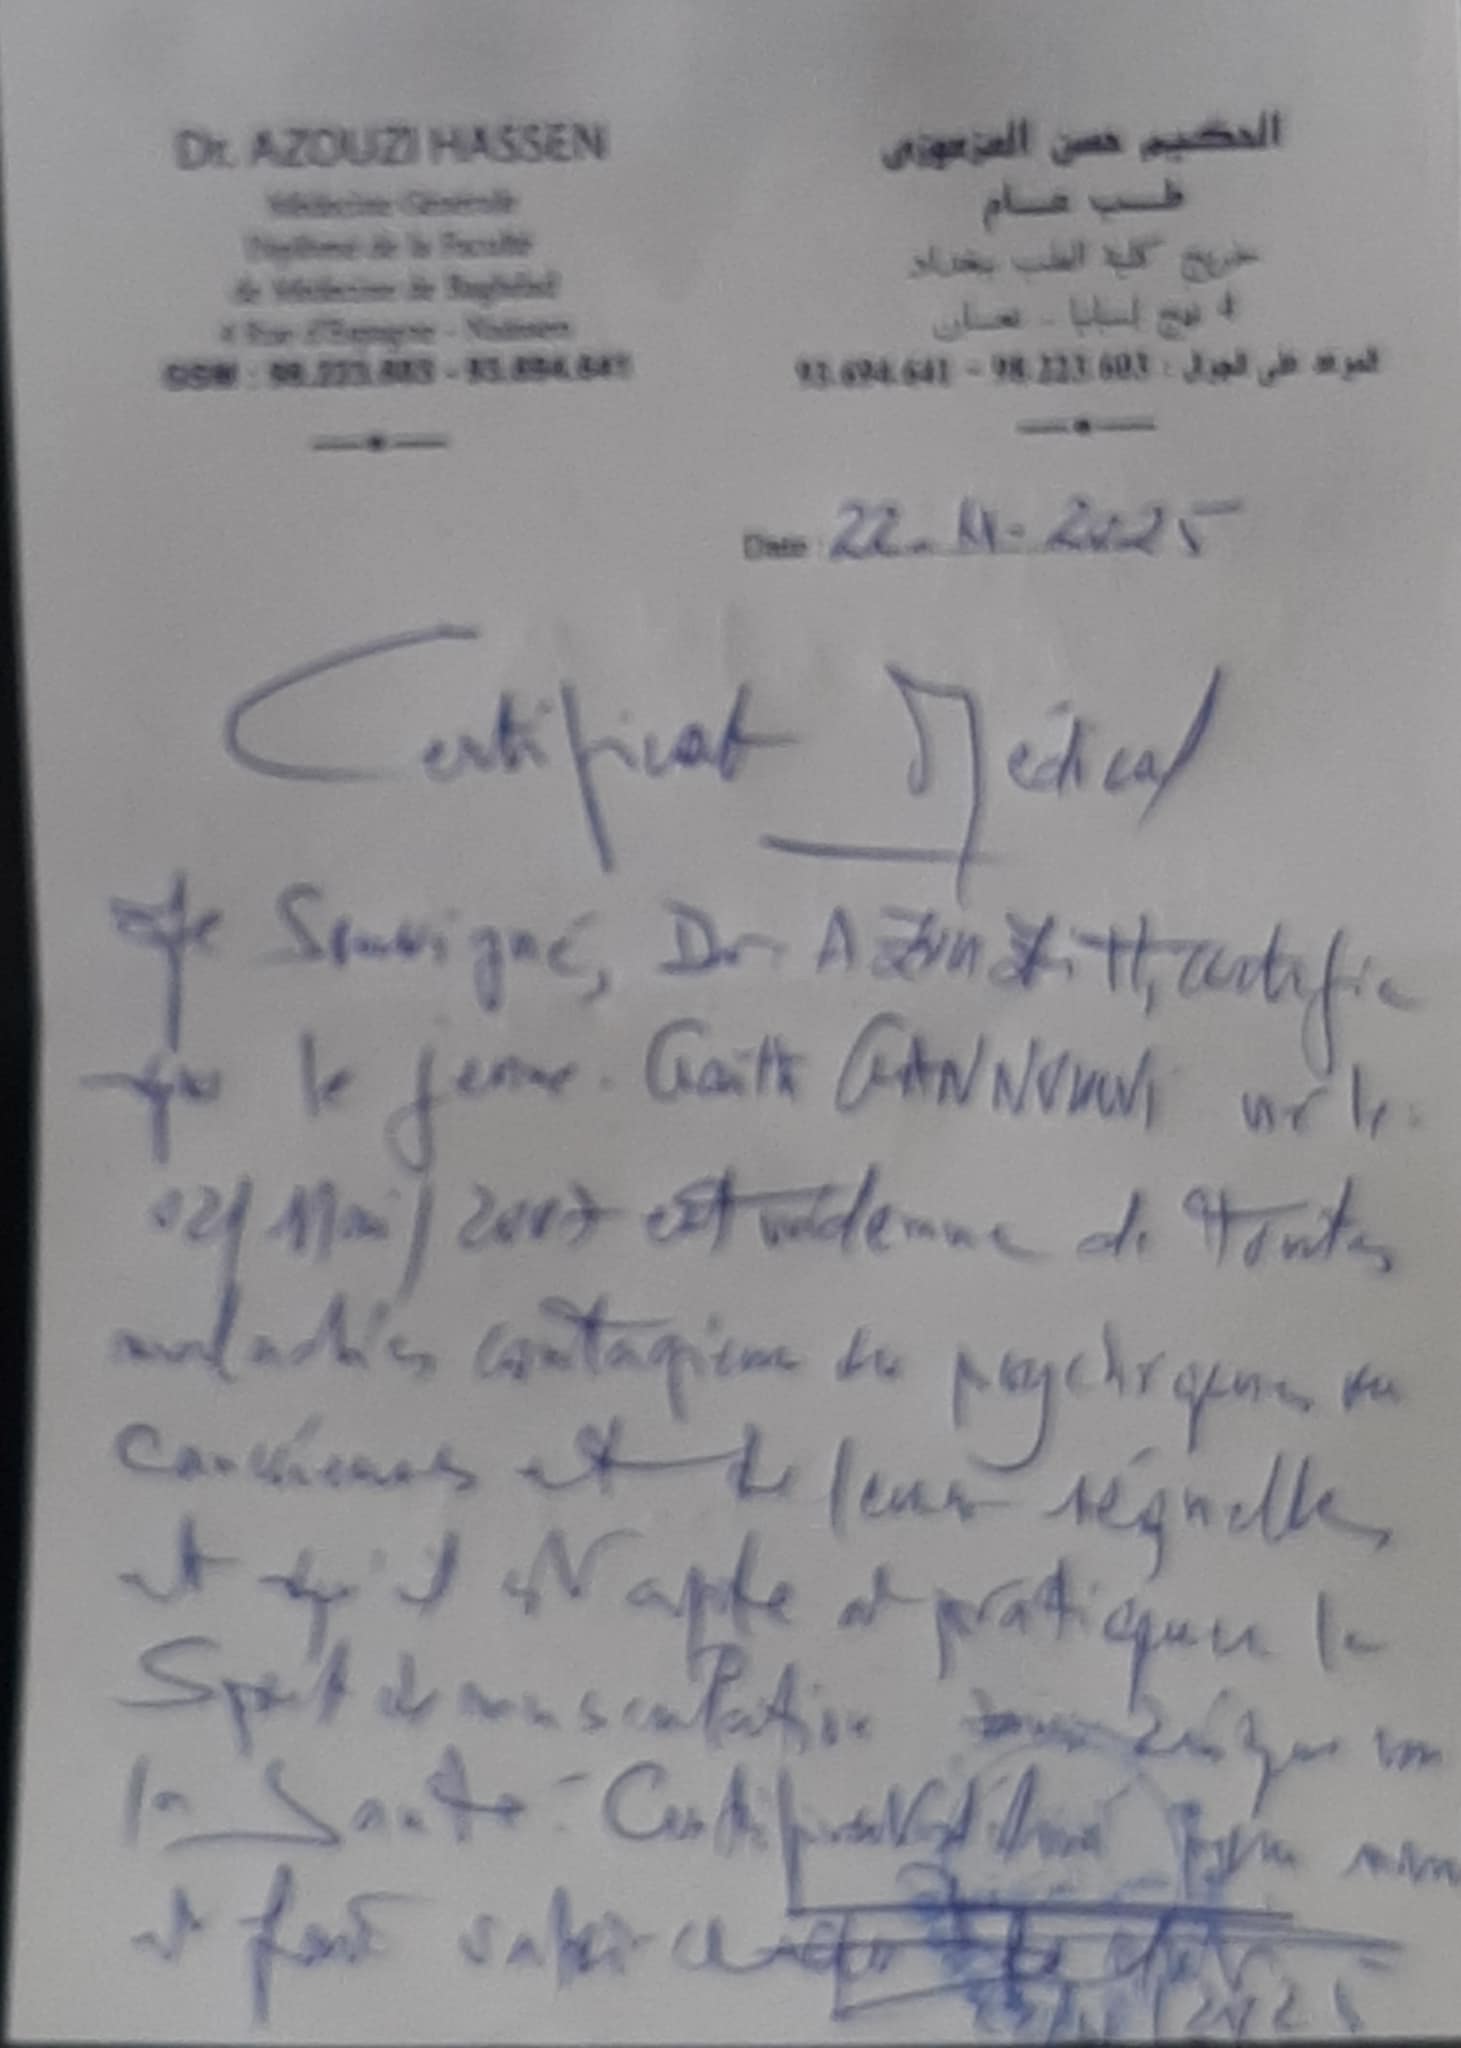 Dr. AZOUZI HASSEN
Médecine Générale
Diplômé de la Faculté
de Médecine de Baghdad
4 Rue d'Espagne -
GSM : 98.223.603 - 93.694.641
الحكيم حسن العزعوزي
طب عام
خريج كلية الطب بغداد
4 نهج اسبانيا - نعسان
الجوال : 98.223.603 - 93.694.641
Date : 22 - XI - 2025
Certificat Médical
Je Soussigné, Dr AZOUZI H, certifie
que le jeune Gaith GANNOUNI né le
02/Mai/2007 est indemne de toutes
maladies contagieuses ou psychiques ou
cancéreuses et de leurs séquelles
et qu'il est apte à pratiquer le
Sport de musculation sans risque sur
la Santé. Certificat délivré pour
et faire valoir ce que de droit
2025